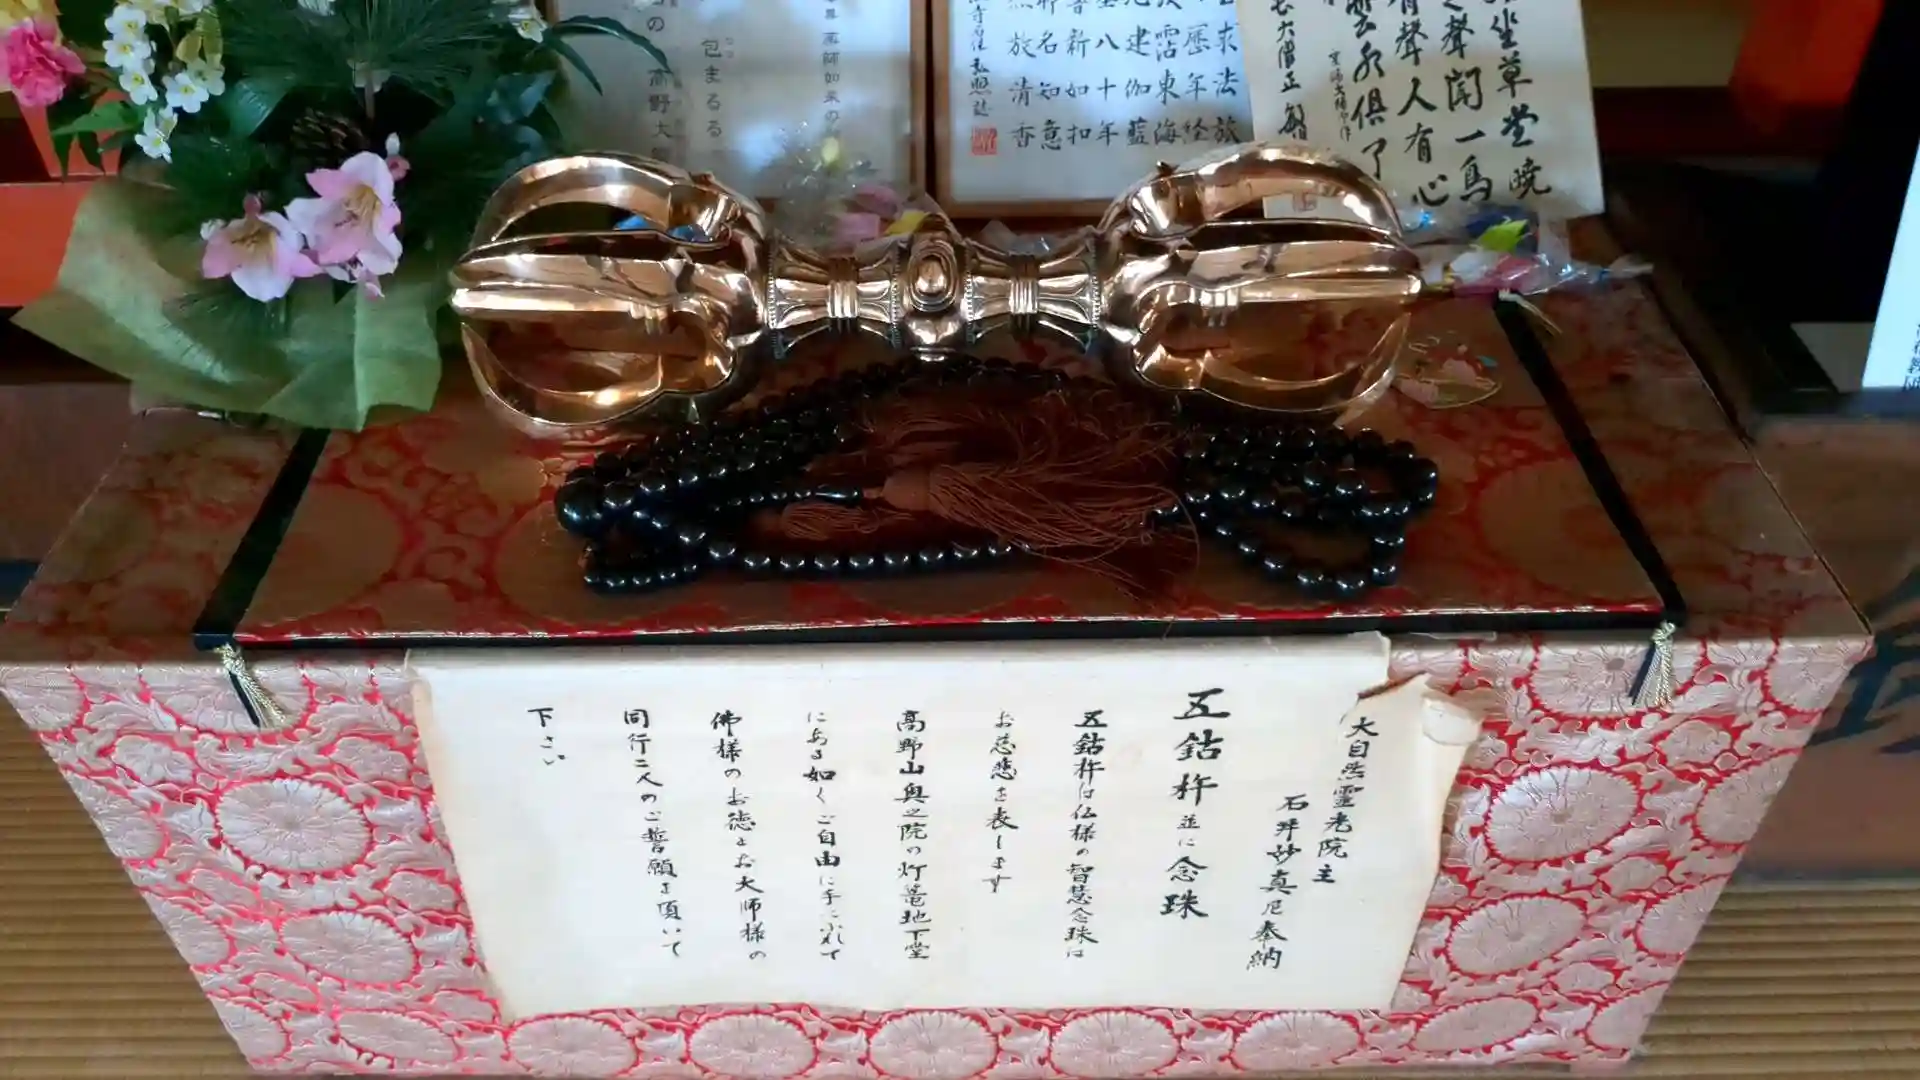 大自然霊光院主
石井妙真尼奉納
五鈷杵並に念珠
五鈷杵は仏様の智慧念珠は
お慈悲を表します
高野山奥之院の灯篭地下堂
にある如くご自由に手にふれて
佛様のお徳とお大師様の
同行二人のご誓願を頂いて
下さい
坐草堂暁
之聲聞一鳥
有聲人有心
雲水俱了
大僧正
求法旅
歴年経
霑東海
建伽藍
八十年
新如扣
名知意
放清香
薬師如来の
包まるる
つつ
の高野大